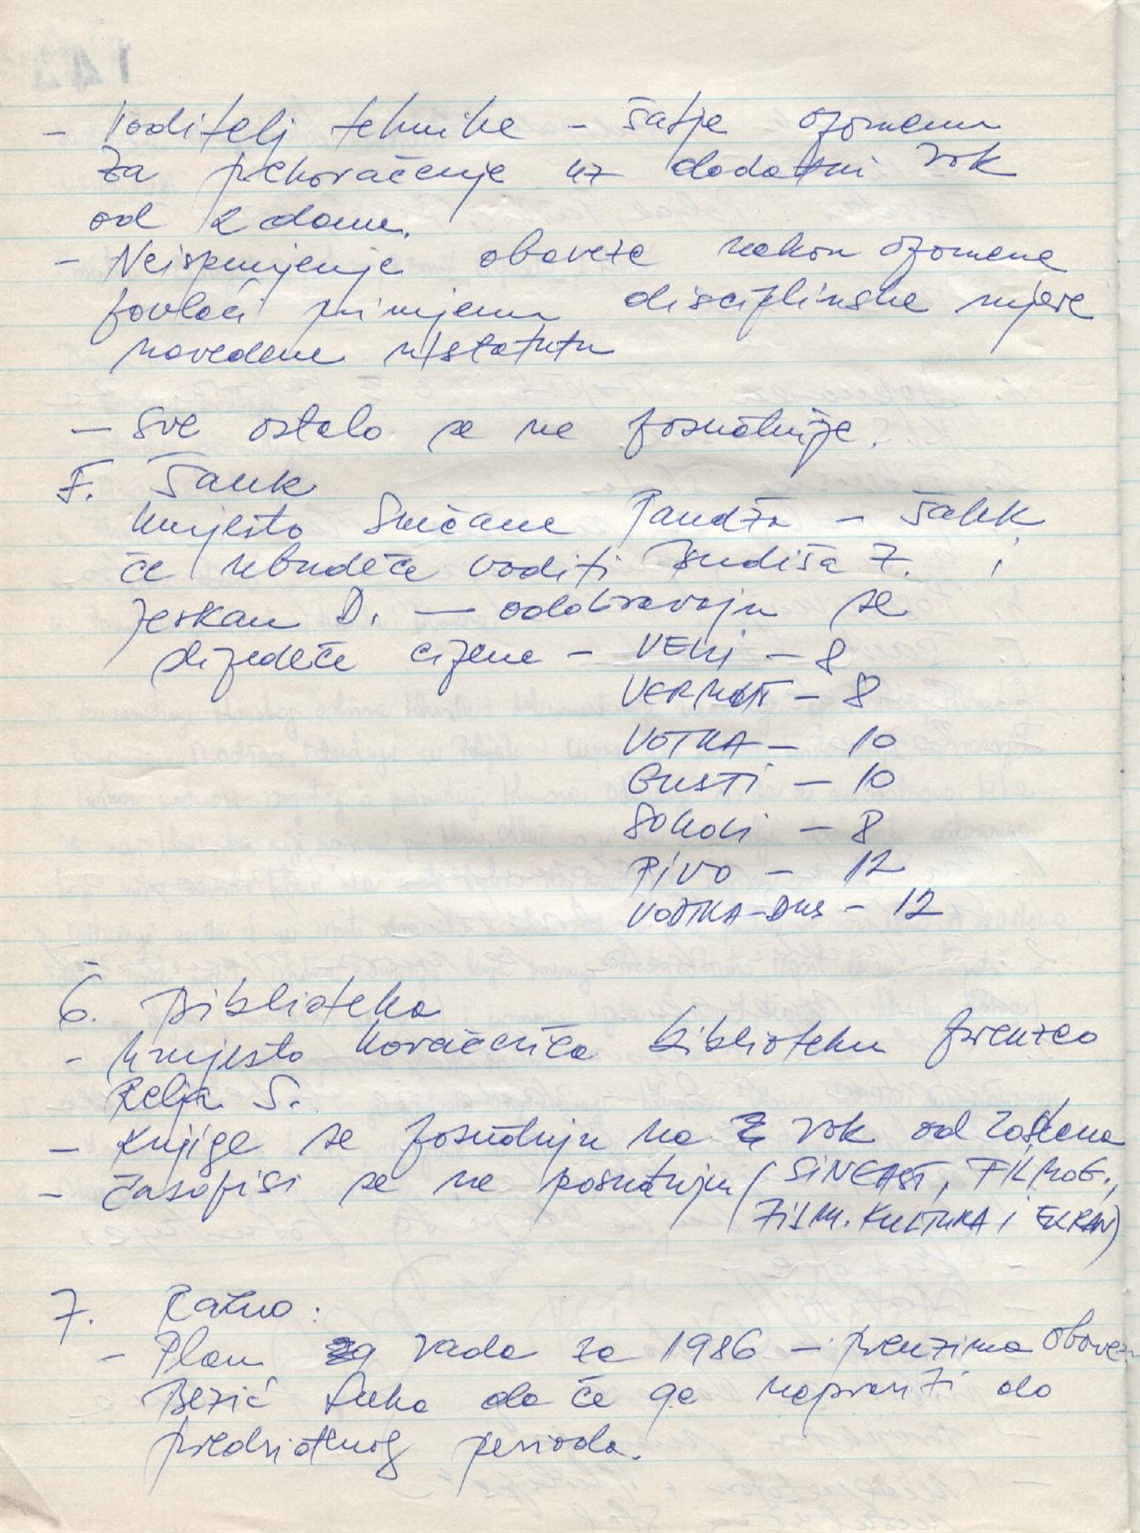 - Voditelj tehnike - šalje opomenu
za prekoračenje uz dodatni rok
od 2 dana.
- Neispunjenje obaveze nakon opomene
povlači primjenu disciplinske mjere
navedene u statutu
- Sve ostalo se ne posuđuje.
5. Šank
Umjesto Smičane Pandža - šank
će ubuduće voditi Z. i
Jerkan D. - odobravaju se
slijedeće cijene - VELJ - 8
VERMUT - 8
VOTKA - 10
GUSTI - 10
SOKOVI - 8
PIVO - 12
VOTKA-DUS - 12
6. Biblioteka
- Umjesto Kovačevića biblioteku preuzeo
Relja S.
- Knjige se posuđuju na rok od
- Časopisi se ne posuđuju (SINEAST, FILMOG.,
FILM. KULTURA I EKRAN)
7. Razno:
- Plan rada za 1986 - preuzima obavezu
Bezić Luka da će ga napraviti do
predsjetnog perioda.